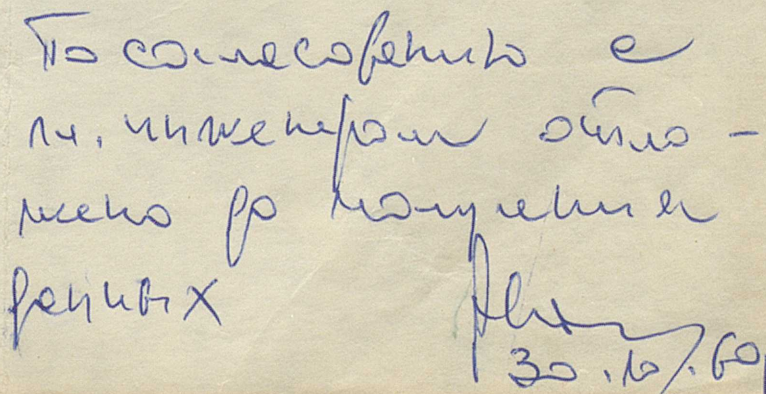 По согласованию с
гл. инженером отло-
жено до получения
данных
30.10.60